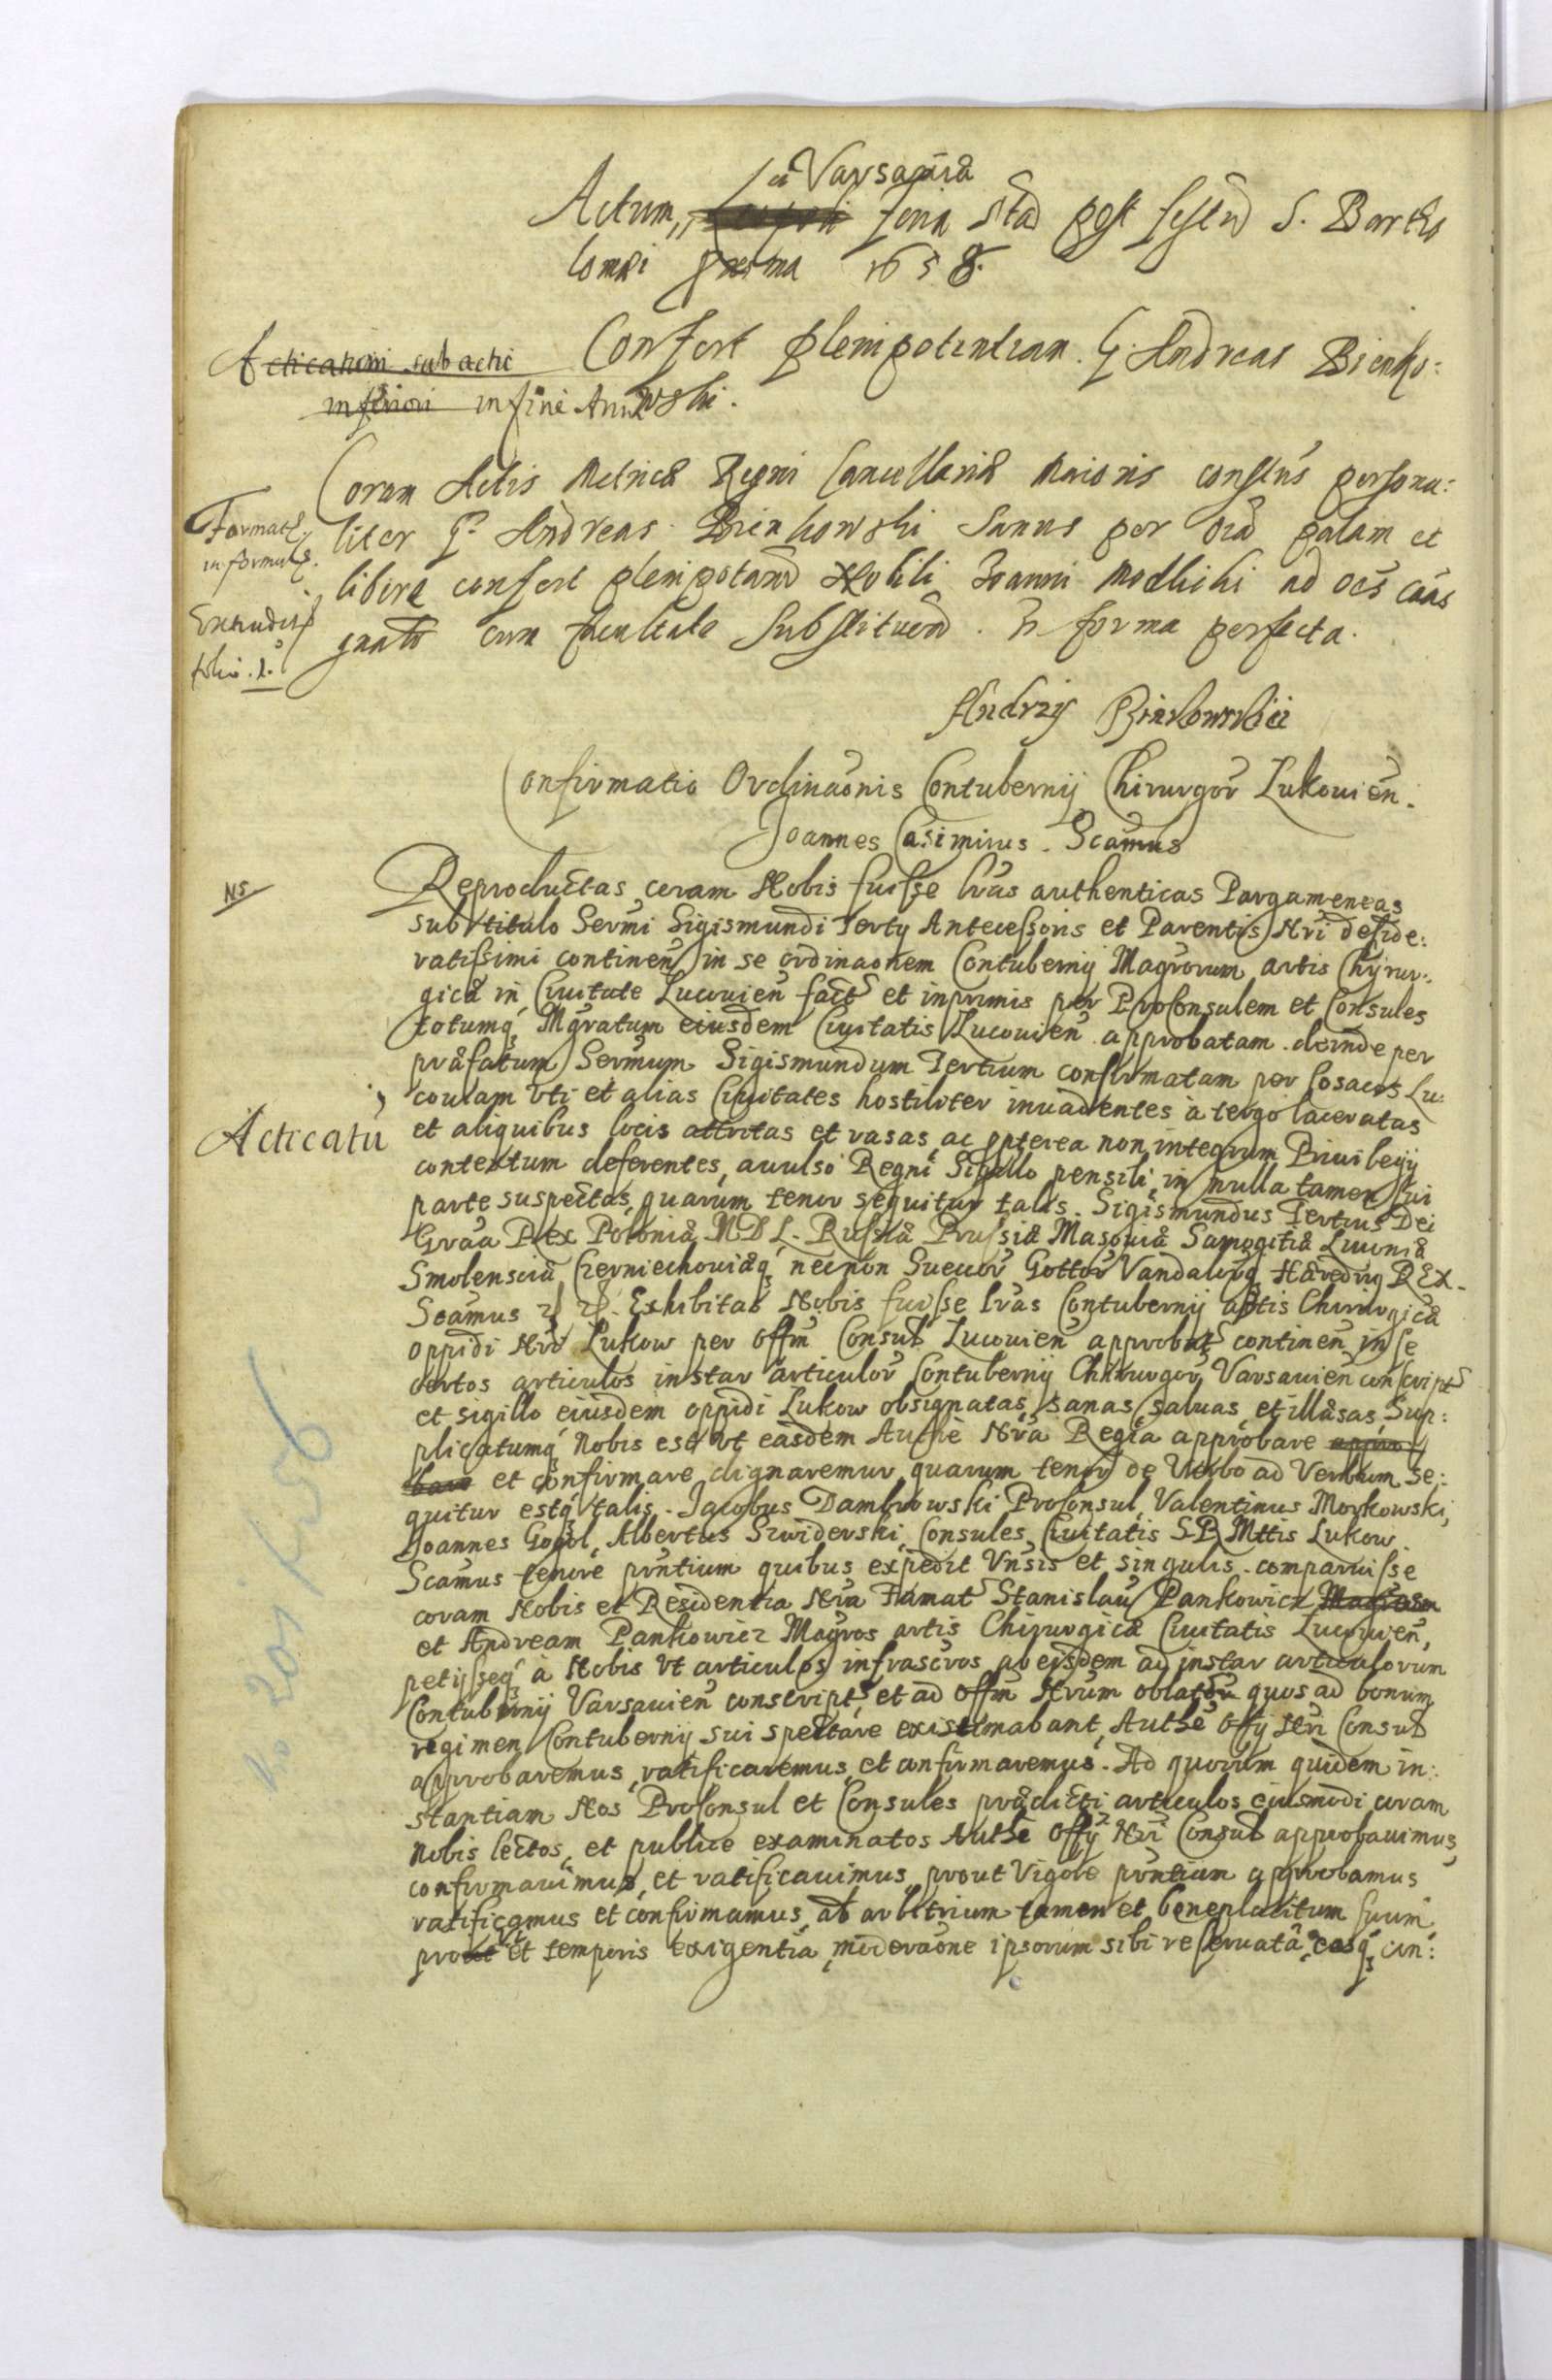 Varsaviæ
Actum, feria 5tâ post festũ S. Bartho
lomæi proxima 1658.
Acticationi sub actic
inferiori in fine Anni
Confert plenipotentiam. G. Andreas Bienko:
wski.
Coram Actis Metricæ Regni Cancellariæ Maioris constũs persona:
liter G. Andreas Bienkowski sanus per oĩa palam et
libere confert plenipotand Nobili Joanni Modlicki ad oẽs cãas
gnalr cum facultate substituend. In forma perfecta.
Format
in formula.
Extraditũ
folio. 1.
Andrzy Binkowskii
Confirmatio Ordinaõnis Contubernij Chirurgor̃ Lukouieñ.
Joannes Casimirus. Scãmus
NS
Reproductas coram Nobis fuisse lr̃as authenticas Pargameneas
sub titulo Serm̃i Sigismundi Tertij Antecessoris et Parentis Nr̃i deside:
ratissimi contineñ in se ordinaonem Contubernij Magr̃orum artis Chijrur:
gicæ in Ciuitate Lucouieñ fact̃ et inprimis per ProConsulem et Consules
totumq́ Mgr̃atum eiusdem Ciuitatis Lucouieñ approbatam. deinde per
præfatum Serm̃um Sigismundum Tertium confirmatam per Cosacos Lu:
couiam vti et alias Ciuitates hostiliter inuadentes à tergo laceratas
Acticatũ
et aliquibus locis attritas et rasas ac ppterea non integrum Priuilegij
contextum deferentes, auulso Regni Sigillo pensili, in nulla tamen sui
parte suspectas, quarum tenor sequitur talis. Sigismundus Tertius Dei
Gr̃aa Rex Poloniæ MDL. Russiæ Prussiæ Masouiæ Samogitiæ Liuoniæ
Smolensciæ Czerniechouiæq́ necnon Sueuor̃ Gottor̃ Vandalorq Hæredrig REX.
Scãmus Exhibitas Nobis fuisse lr̃as Contubernij artis Chirurgicæ
oppidi Nr̃i Lukow per Offm̃ Consul Lucouieñ approbat̃ contineñ in se
certos articulos instar articulor̃ Contubernij Chirurgor̃ Varsauieñ conscript̃
et sigillo eiusdem oppidi Lukow obsignatas, sanas, saluas, et illæsas. Sup:
plicatumq́ Nobis est vt easdem Authẽ Nr̃a Regia approbare appro
bare et confirmare dignaremur, quarum tenor de Verbo ad Verbum se:
quitur estq́ talis. Jacobus Dambrowski ProConsul, Valentinus Morkowski,
Joannes Gogol, Albertus Swiderski, Consules Ciuitatis S R Mttis Lukow.
Scãmus tenore pñtium quibus expedit Vñsis et singulis. comparuisse
coram Nobis et Residentia Nr̃a Famat̃ Stanislaũ Pankowicz Magrosm
et Andream Pankowicz Magr̃os artis Chirurgicæ Ciuitatis Lucouieñ,
petijsseq́ à Nobis vt articulos infrascr̃os ab eisdem ad instar articulorum
Contubernij Varsauieñ conscript̃, et ad Offm̃ Nr̃um oblatõs quos ad bonum
regimen Contubernij sui spectare existimabant, Authẽ Offij Nr̃i Consul
approbaremus, ratificaremus, et confirmaremus. Ad quorum quidem in:
stantiam Nos ProConsul et Consules prædicti articulos eiusmodi coram
Nobis lectos, et publice examinatos Authẽ Offij Nr̃i Consul approbauimus,
confirmauimus, et ratificauimus, prout Vigore pñtium approbamus
ratificamus et confirmamus, ad arbitrium tamen et beneplacitum suum,
prout et temporis exigentia, moderaõne ipsorum sibi reseruatâ, easq́ con: